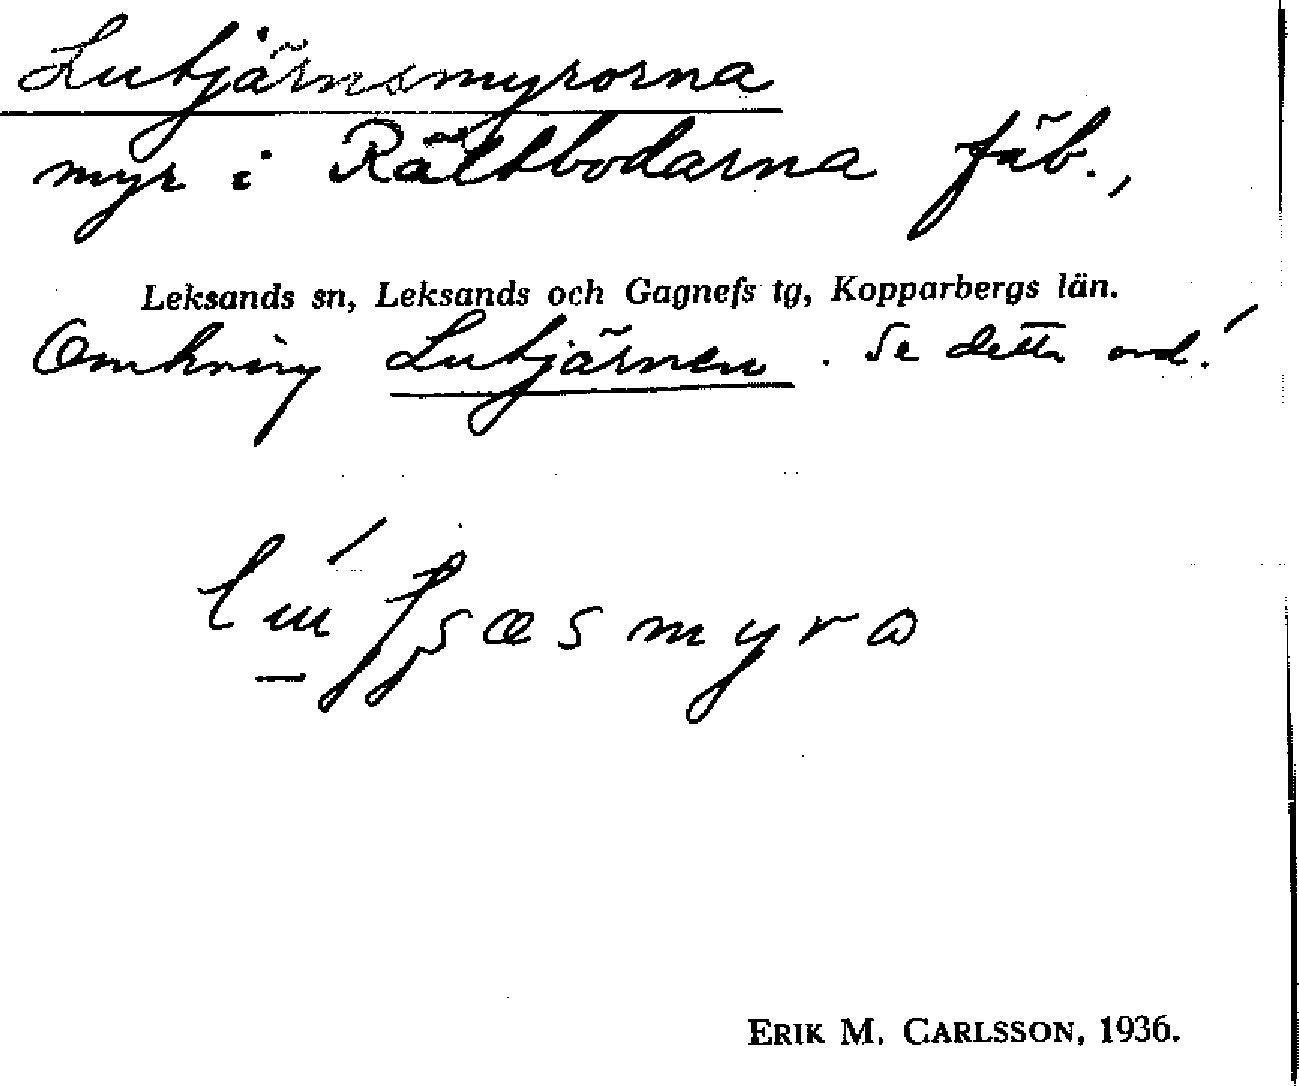 Lutjärnsmyrorna
myr i Rältbodarna fäb.,
Leksands sn, Leksands och Gagnefs tg, Kopparbergs län.
Omkring Lutjärnen. Se detta ord!
ERIK M. CARLSSON, 1936.